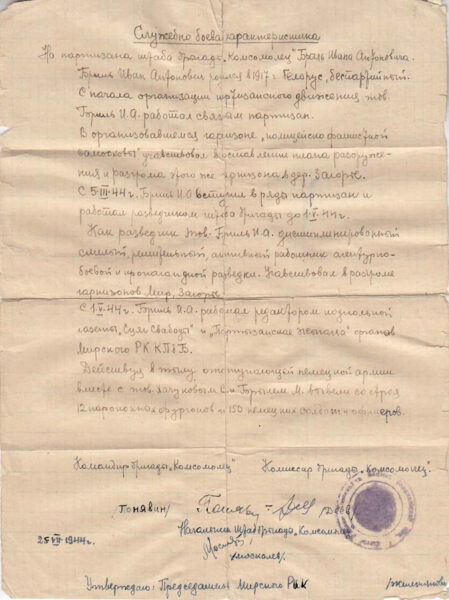 Служебно боевая характеристика
На партизана штаба бригады „Комсомолец" Ивана Антоновича.
Иван Антонович родился в 1917 г. Белорус, беспартийный.
С начала организации партизанского движения тов.
И.А. работал связным партизан.
В организовавшемся гарнизоне „полицейско фашистской
участвовал в составлении плана разоруже-
ния и разгрома этого же гарнизона в дер. Загорье.
С 5-III-44 г. И.А. вступил в ряды партизан и
работал разведчиком штаба бригады до 1-V-44 г.
Как разведчик тов. И.А. дисциплинированный
смелый, решительный, активный работник агентурно-
боевой и пропагандной разведки. Участвовал в разгроме
гарнизонов Мир, Загорье.
С 1-V-44 г. И.А. работал редактором подпольной
газеты „ Свабоды" и „Партызанское" органов
Мирского РК КПбБ.
Действуя в тылу отступающей немецкой армии
вместе с тов. и М. вывели со строя
12 пароконных фургонов и 150 немецких солдат и офицеров.
Командир бригады „Комсомолец" Комиссар бригады „Комсомолец".
/Понявин/
Начальник Штаба бригады „Комсомолец"
25-VII-1944 г.
Утверждаю: Председатель Мирского